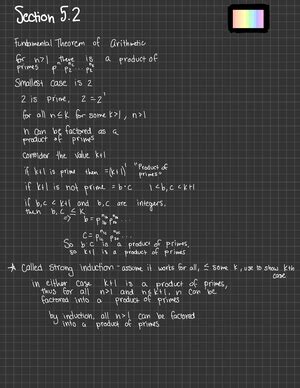 Section 5.2
Fundamental Theorem of Arithmetic
for n>1 there is a product of
primes p₁ p₂ ... pₖ
Smallest case is 2
2 is prime, 2 = 2¹
for all n ≤ k for some k>1, n>1
n can be factored as a
product of primes
consider the value k+1
if k+1 is prime then =(k+1)¹ "Product of
primes"
if k+1 is not prime = b·c 1<b,c<k+1
if b,c < k+1 and b,c are integers,
then b,c ≤ k
⇒ b =
c =
So b·c is a product of primes,
so k+1 is a product of primes
Called strong induction - assume it works for all, ≤ some k, use to show kth
case
in either case k+1 is a product of primes,
thus for all n>1 and n≤k+1, n can be
factored into a product of primes
by induction, all n>1 can be factored
into a product of primes